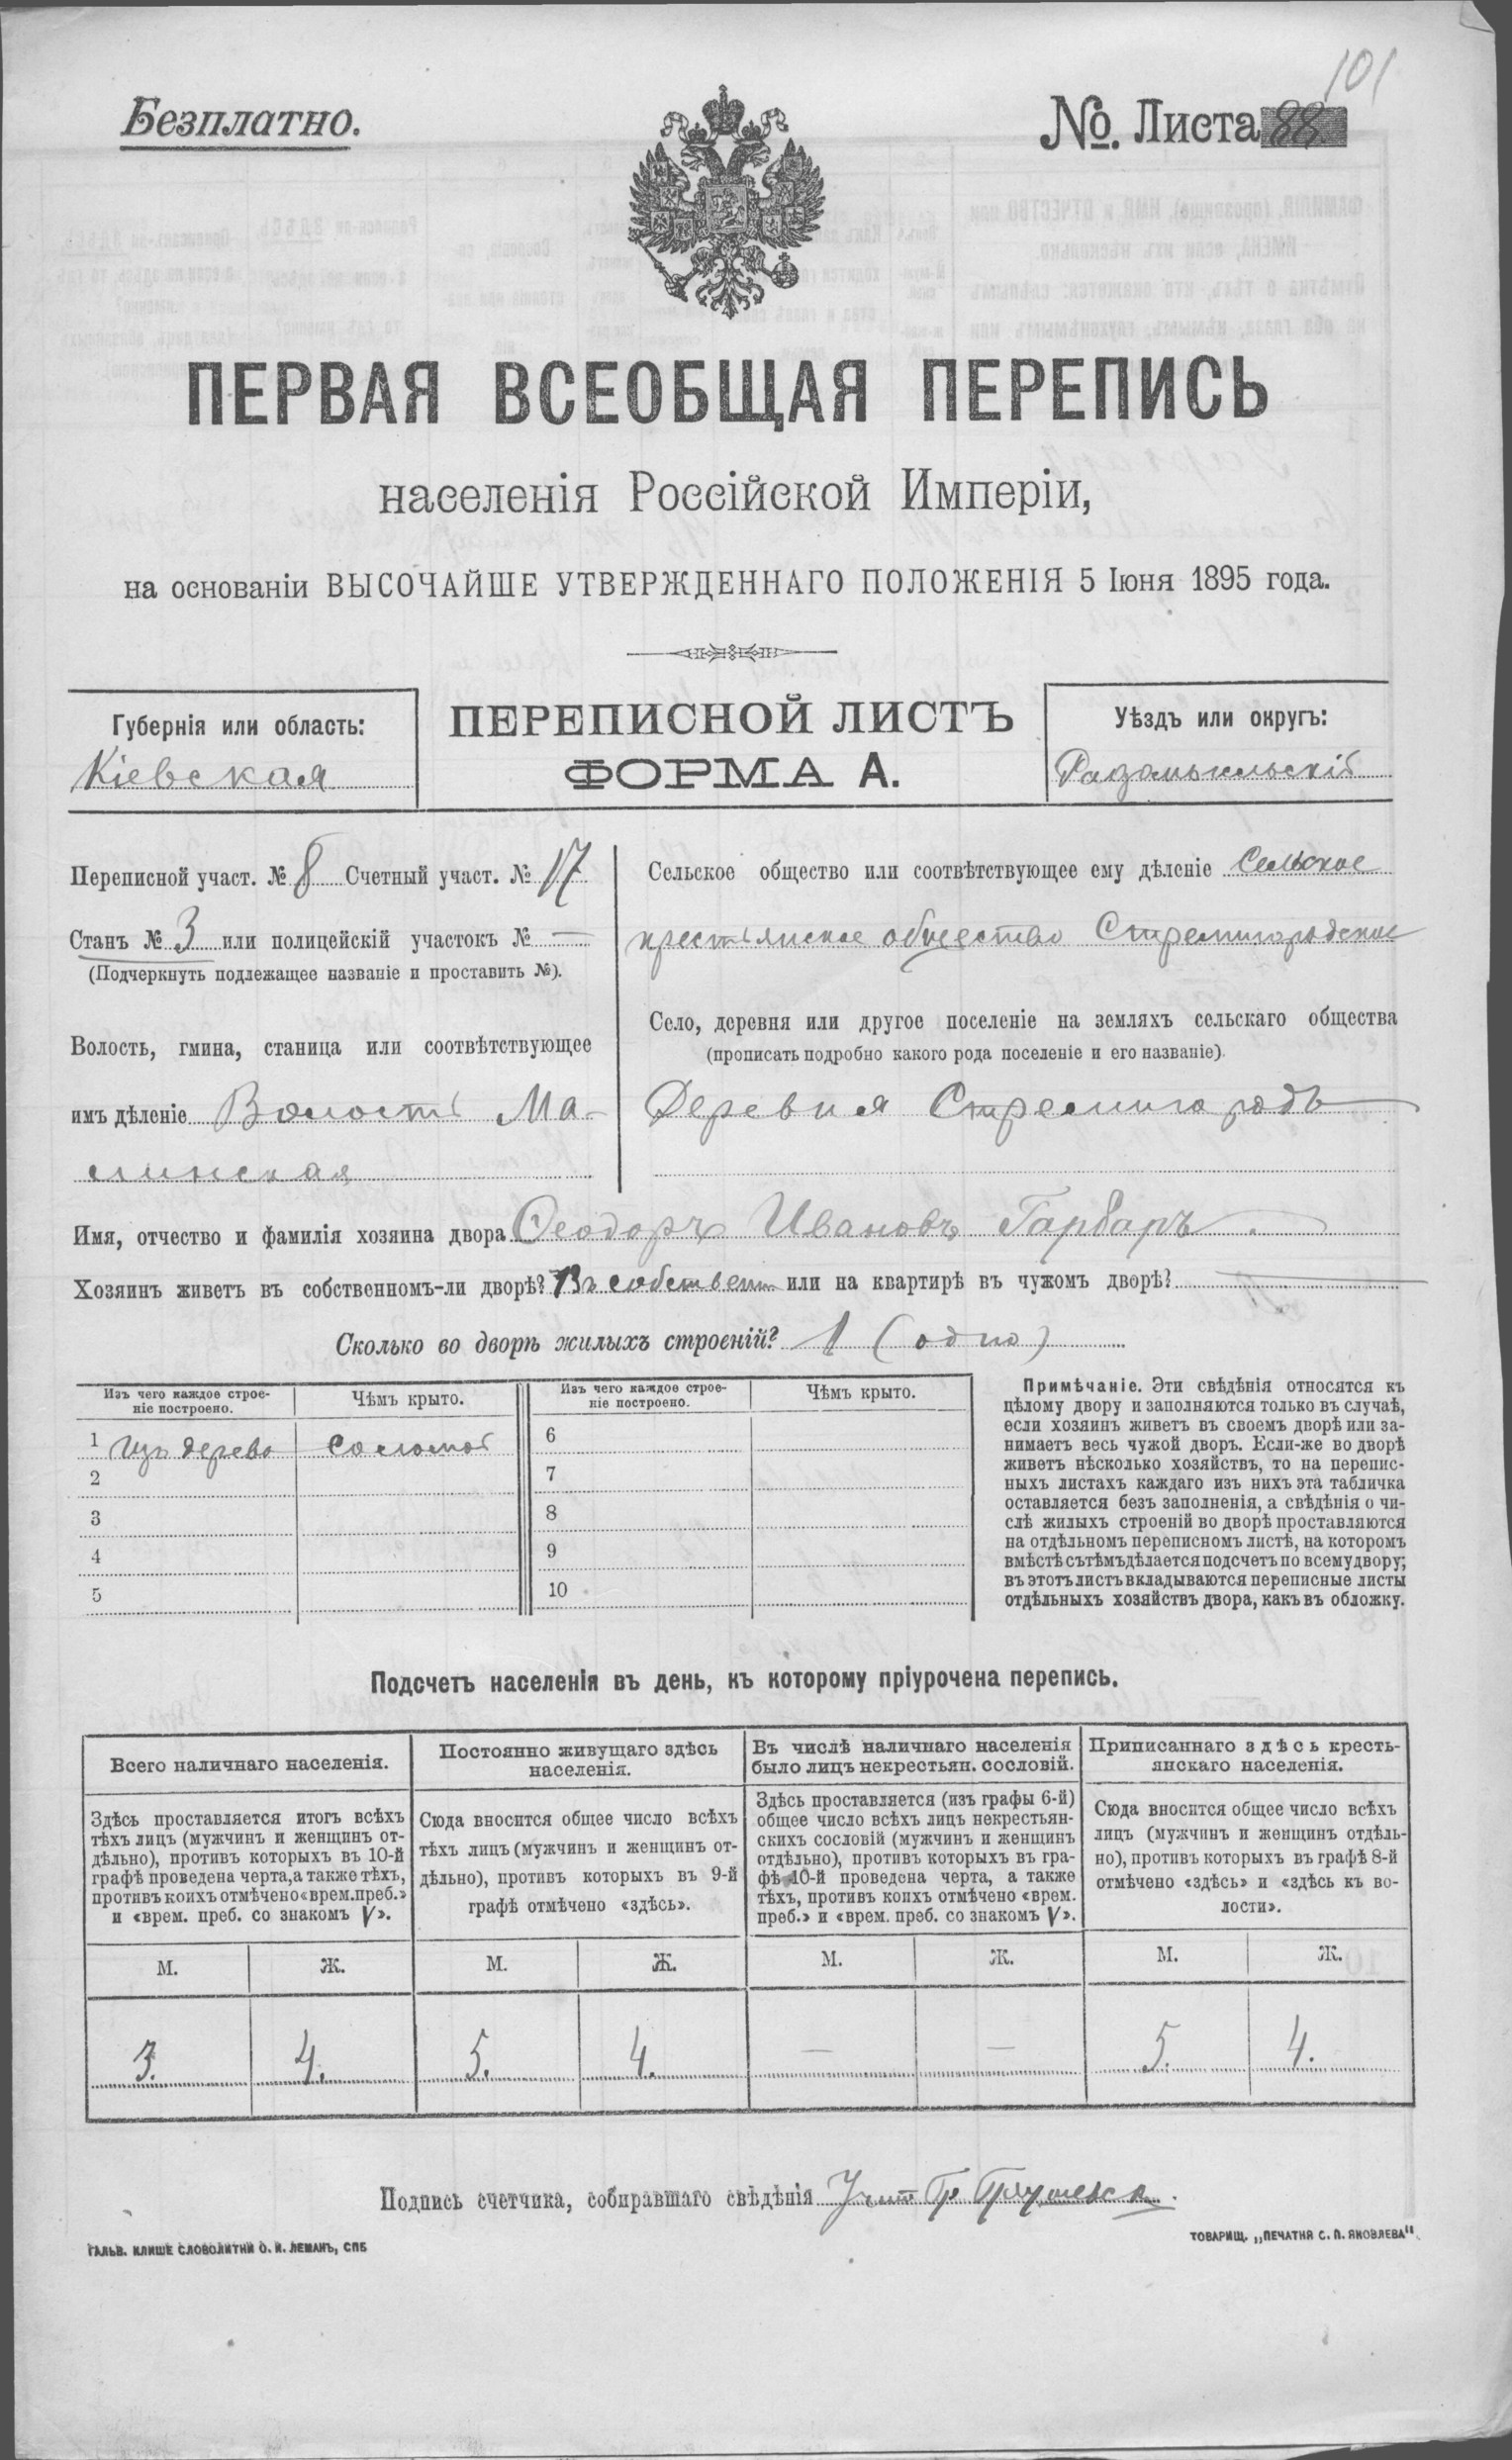 101
Безплатно.
№. Листа 88
ПЕРВАЯ ВСЕОБЩАЯ ПЕРЕПИСЬ
населенія Россійской Имперіи,
на основаніи ВЫСОЧАЙШЕ УТВЕРЖДЕННАГО ПОЛОЖЕНІЯ 5 Іюня 1895 года.
Губернія или область:
Кіевская
ПЕРЕПИСНОЙ ЛИСТЪ
ФОРМА А.
Уѣздъ или округъ:
Радомысльскій
Переписной участ. № 8 Счетный участ. № 17
Станъ № 3 или полицейскій участокъ № —
(Подчеркнуть подлежащее названіе и проставить №).
Волость, гмина, станица или соотвѣтствующее
имъ дѣленіе Волость Ма-
линская
Сельское общество или соотвѣтствующее ему дѣленіе Сельское
крестьянское общество Стремигородское
Село, деревня или другое поселеніе на земляхъ сельскаго общества
(прописать подробно какого рода поселеніе и его названіе).
Деревня Стремигородъ
Имя, отчество и фамилія хозяина двора Ѳеодоръ Ивановъ Гарбаръ
Хозяинъ живетъ въ собственномъ-ли дворѣ? Въ собствен или на квартирѣ въ чужомъ дворѣ? —
Сколько во дворѣ жилыхъ строеній? 1 (одно)
Изъ чего каждое строе-
ніе построено.
Чѣмъ крыто.
Изъ чего каждое строе-
ніе построено.
Чѣмъ крыто.
1 Изъ дерева соломой
2
3
4
5
6
7
8
9
10
Примѣчаніе. Эти свѣдѣнія относятся къ
цѣлому двору и заполняются только въ случаѣ,
если хозяинъ живетъ въ своемъ дворѣ или за-
нимаетъ весь чужой дворъ. Если-же во дворѣ
живетъ нѣсколько хозяйствъ, то на перепис-
ныхъ листахъ каждаго изъ нихъ эта табличка
оставляется безъ заполненія, а свѣдѣнія о чи-
слѣ жилыхъ строеній во дворѣ проставляются
на отдѣльномъ переписномъ листѣ, на которомъ
вмѣстѣ съ тѣмъ дѣлается подсчетъ по всему двору;
въ этотъ листъ вкладываются переписные листы
отдѣльныхъ хозяйствъ двора, какъ въ обложку.
Подсчетъ населенія въ день, къ которому пріурочена перепись.
Всего наличнаго населенія.
Здѣсь проставляется итогъ всѣхъ
тѣхъ лицъ (мужчинъ и женщинъ от-
дѣльно), противъ которыхъ въ 10-й
графѣ проведена черта, а также тѣхъ,
противъ коихъ отмѣчено «врем. преб.»
и «врем. преб. со знакомъ V».
Постоянно живущаго здѣсь
населенія.
Сюда вносится общее число всѣхъ
тѣхъ лицъ (мужчинъ и женщинъ от-
дѣльно), противъ которыхъ въ 9-й
графѣ отмѣчено «здѣсь».
Въ числѣ наличнаго населенія
было лицъ некрестьян. сословій.
Здѣсь проставляется (изъ графы 6-й)
общее число всѣхъ лицъ некрестьян-
скихъ сословій (мужчинъ и женщинъ
отдѣльно), противъ которыхъ въ гра-
фѣ 10-й проведена черта, а также
тѣхъ, противъ коихъ отмѣчено «врем.
преб.» и «врем. преб. со знакомъ V».
Приписаннаго здѣсь кресть-
янскаго населенія.
Сюда вносится общее число всѣхъ
лицъ (мужчинъ и женщинъ отдѣль-
но), противъ которыхъ въ графѣ 8-й
отмѣчено «здѣсь» и «здѣсь къ во-
лости».
М. Ж. М. Ж. М. Ж. М. Ж.
3. 4. 5. 4. — — 5. 4.
Подпись счетчика, собиравшаго свѣдѣнія
ГАЛЬВ. КЛИШЕ СЛОВОЛИТНИ О. И. ЛЕМАНЪ, СПБ
ТОВАРИЩ. „ПЕЧАТНЯ С. П. ЯКОВЛЕВА"